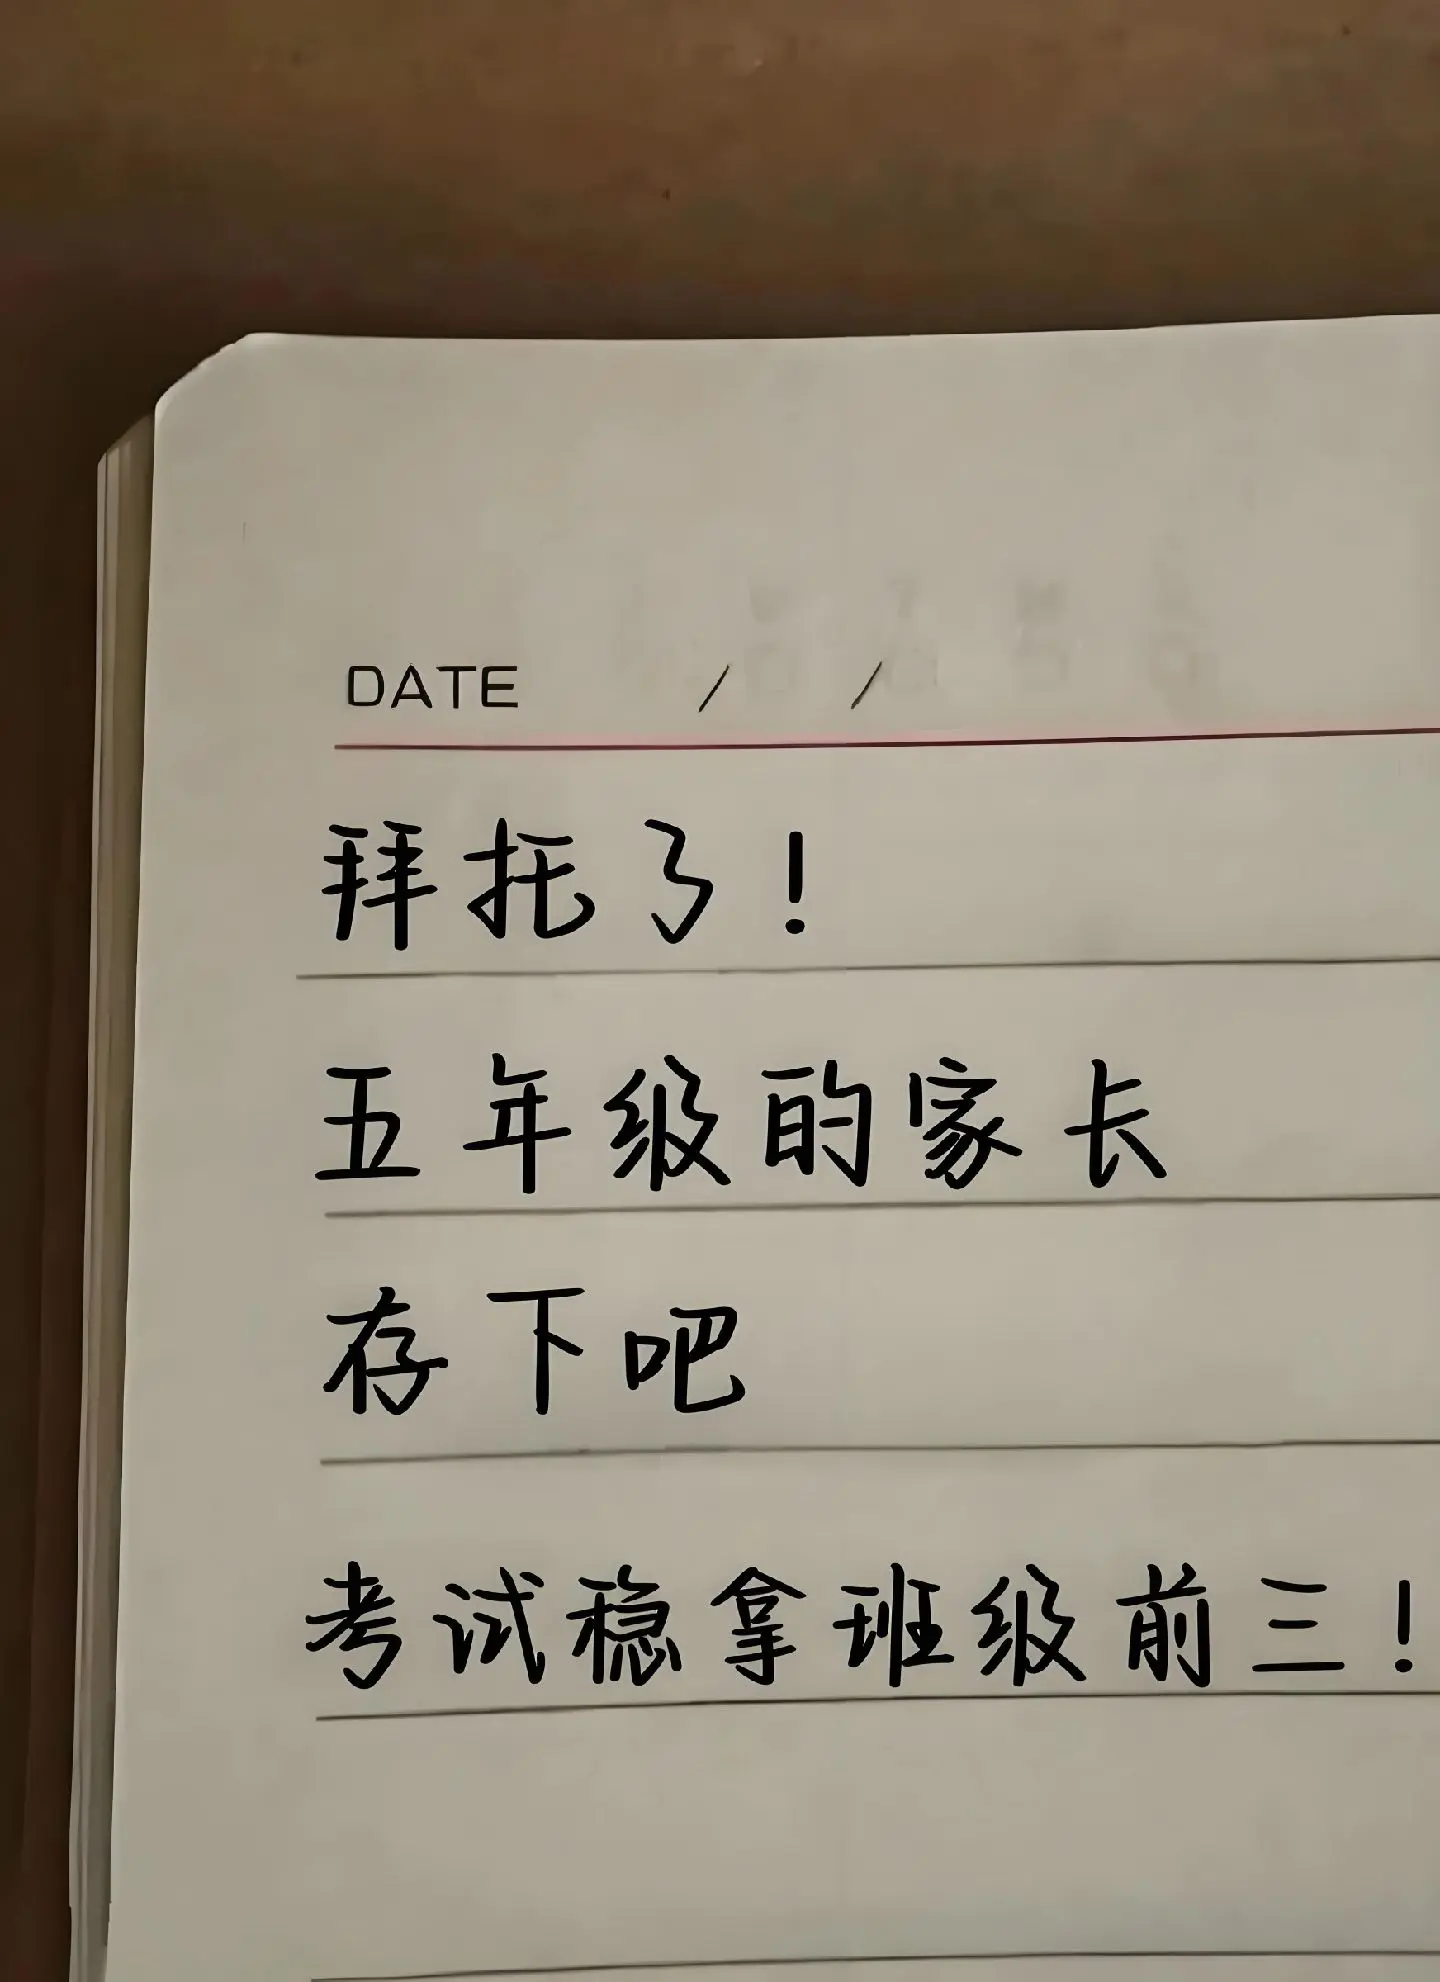 DATE / /
拜托了!
五年级的家长
存下吧
考试稳拿班级前三!